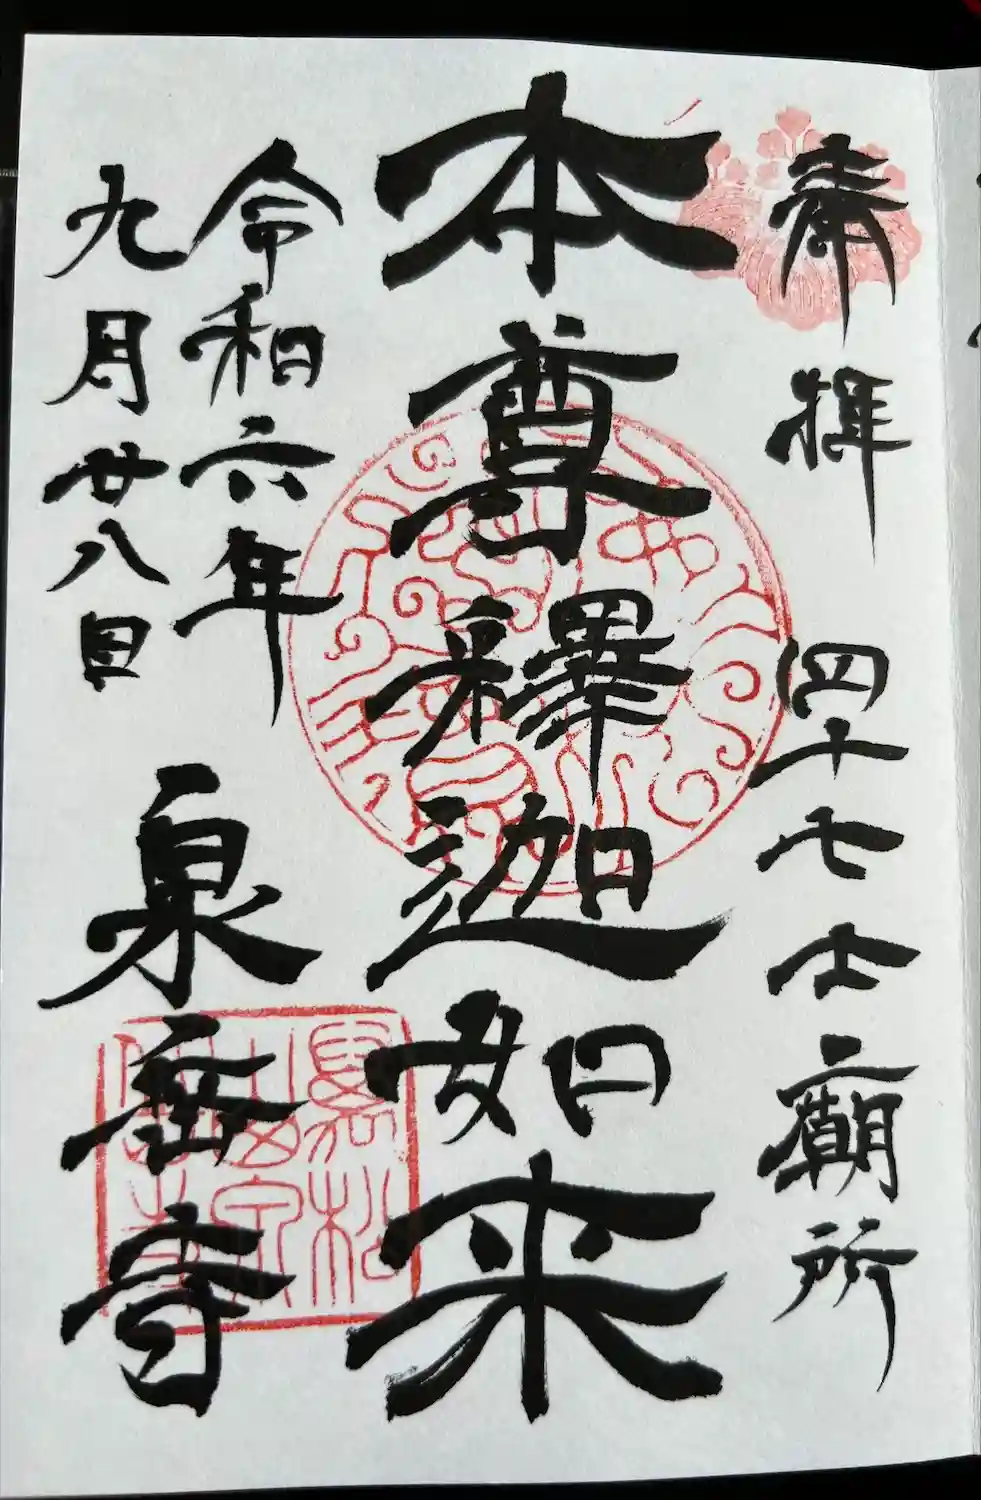 奉拝
四十七士廟所
本尊釋迦如来
令和六年
九月廿八日
泉岳寺